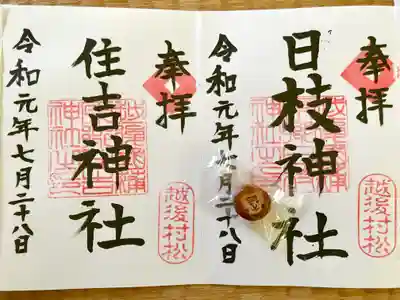 奉拝
日枝神社
令和元年七月二十八日
越後村松
奉拝
住吉神社
令和元年七月二十八日
越後村松